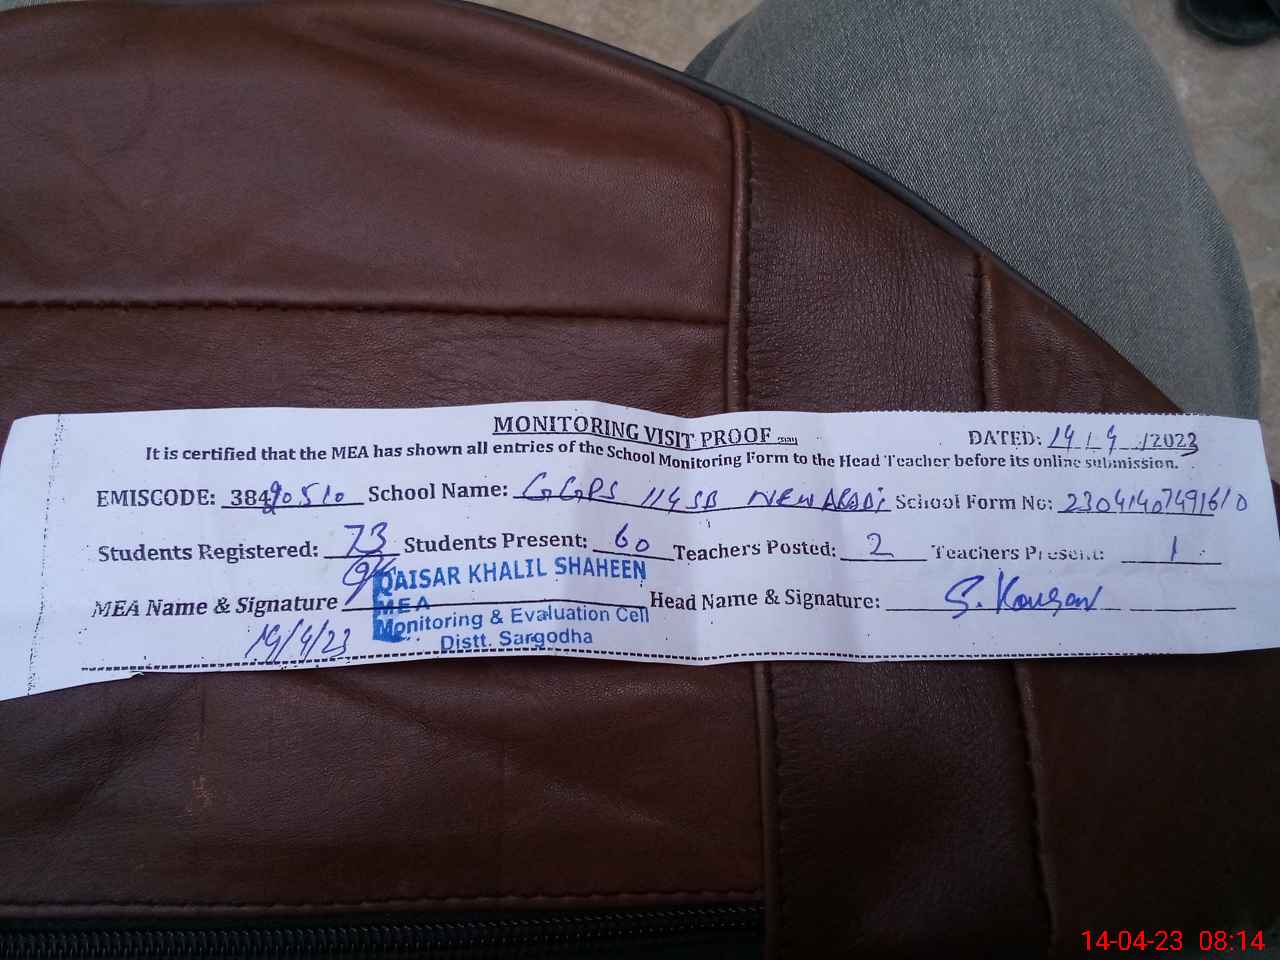 MONITORING VISIT PROOF
DATED: 14/4/2023
It is certified that the MEA has shown all entries of the School Monitoring Form to the Head Teacher before its online submission.
EMISCODE: 38490510 School Name: GGPS 114 SB NEW ABADI School Form No: 23041407491610
Students Registered: 73 Students Present: 60 Teachers Posted: 2 Teachers Present: 1
MEA Name & Signature Head Name & Signature: S. Kousar
QAISAR KHALIL SHAHEEN
MEA
Monitoring & Evaluation Cell
Distt. Sargodha
14/4/23
14-04-23 08:14